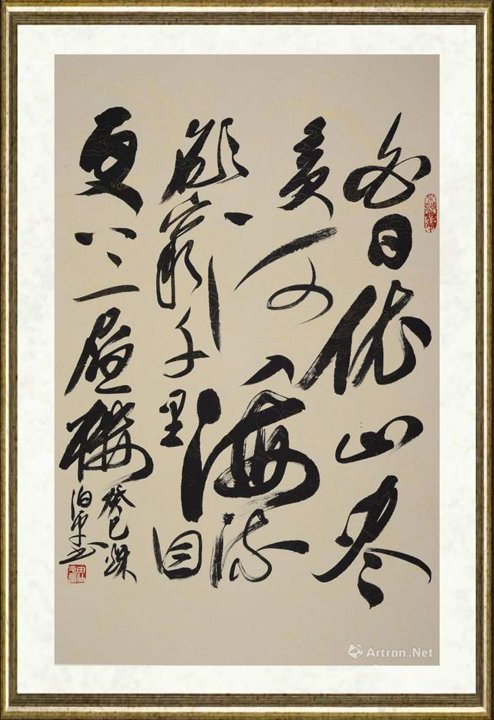 白日依山尽
黄河入海流
欲窮千里目
更上一層樓
癸巳
Artron.Net